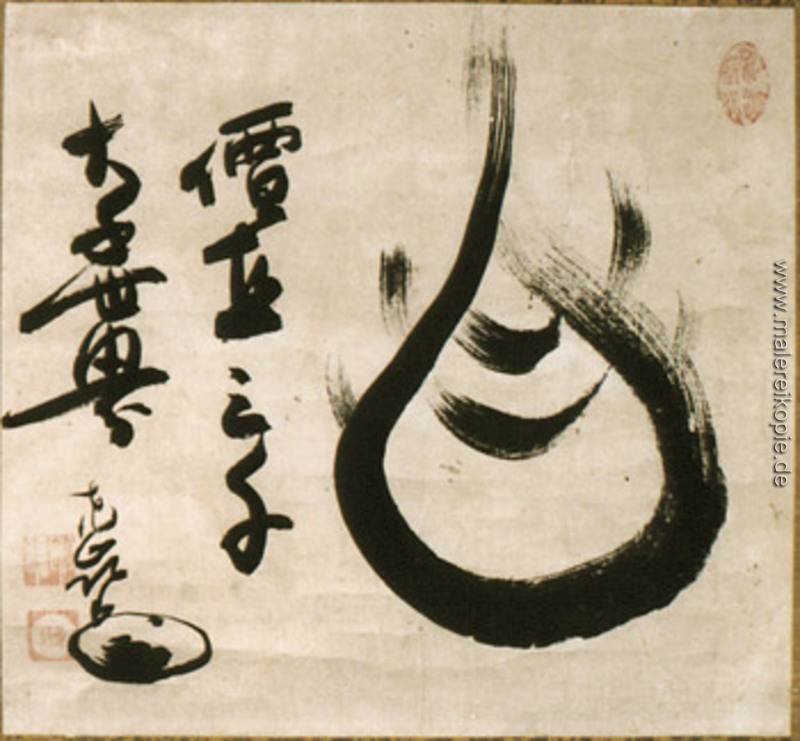 價直三千
大千世界
www.malereikopie.de